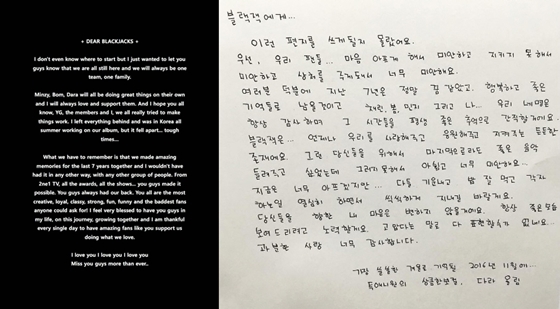 + DEAR BLACKJACKS +
I don't even know where to start but I just wanted to let you
guys know that we are all still here and we will always be one
team, one family.
Minzy, Bom, Dara will all be doing great things on their own
and I will always love and support them. And I hope you all
know, YG, the members and I, we all really tried to make
things work. I left everything behind and was in Korea all
summer working on our album, but it fell apart... tough
times...
What we have to remember is that we made amazing
memories for the last 7 years together and I wouldn't have
had it in any other way, with any other group of people. From
2ne1 TV, all the awards, all the shows... you guys made it
possible. You guys always had our back. You all are the most
creative, loyal, classy, strong, fun, funny and the baddest fans
anyone could ask for! I feel very blessed to have you guys in
my life, on this journey, growing together and I am thankful
every single day to have amazing fans like you support us
doing what we love.
I love you I love you I love you
Miss you guys more than ever..
블랙잭에게...
이런 편지를 쓰게될지 몰랐어요.
우선, 우리 팬들... 마음 아프게 해서 미안하고 지키지 못해서
미안하고 상처를 주게돼서 너무 미안해요.
여러분 덕분에 지난 7년은 정말 꿈 같았고, 행복하고 좋은
기억들로 남을것이고 채린, 봄, 민지 그리고 나... 우리 네명은
항상 감사하며 그 시간들을 평생 좋은 추억으로 간직할게요.
블랙잭은... 언제나 우리를 사랑해주고 응원해주고 지켜주는 든든한
존재에요. 그런 당신들을 위해서 마지막으로라도 좋은 음악
들려주고 싶었는데 그러지못해서 아쉽고 너무 미안해요...
지금은 너무 아프겠지만... 다들 기운내고 밥 잘 먹고 각자
하는일 열심히 하면서 씩씩하게 지내길 바랄게요.
당신들을 향한 내 마음은 변하지 않을거에요. 항상 좋은모습
보여드리려고 노력할게요. 고맙다는 말로 다 표현할수가 없네요...
과분한 사랑 너무 감사합니다.
가장 쓸쓸한 겨울로 기억될 2016년 11월에...
투애니원의 상큼한보컬, 다라 올림